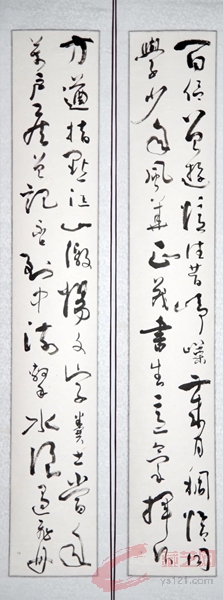 百侣曾遊憶往昔崢嶸歲月稠恰同
學少年風華正茂書生意氣揮斥
方遒指點江山激揚文字糞土當年
萬戶侯曾記否到中流擊水浪遏飛舟